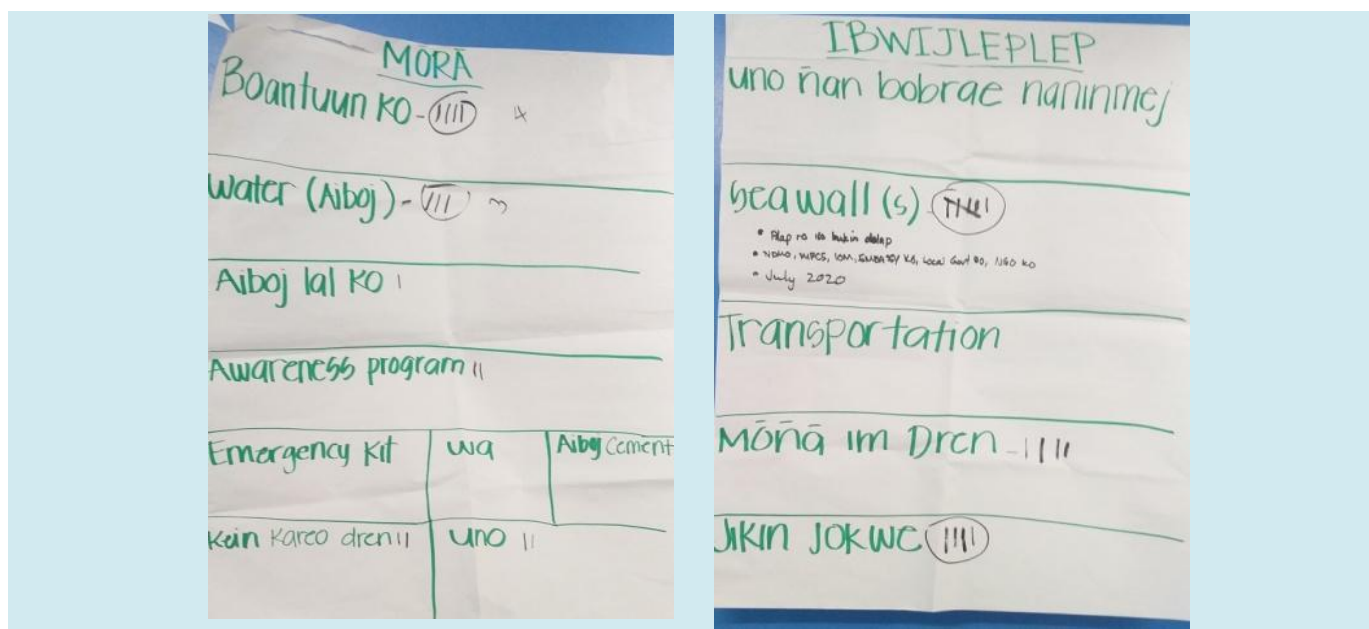 MORĀ
Boantuun KO - 4
Water (Aiboj) -
Aiboj lal KO
Awareness program
Emergency Kit
wa
Aiboj Cement
Kein Kareo dren
uno
IBWIJLEPLEP
uno n̄an bobrae naninmej
Seawall (s)
• Alap ro ilo bukin
• NDMO, WPCS, IOM, EMBASSY KO, Local Govt KO, NGO ko
• July 2020
Transportation
Mōn̄ā im Dren -
Jikin Jokwe